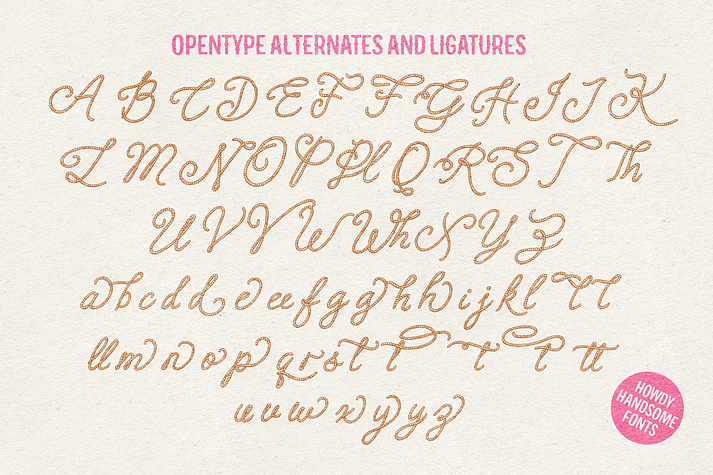 OPENTYPE ALTERNATES AND LIGATURES
A B C D E F F G H I J K
L M N O P Pl Q R S T Th
U V V W Wh X Y Z
a b c d d e ee f g g h h i j k l
ll m n o p q r s t t t t tt
u v w x y y z
HOWDY
HANDSOME
FONTS